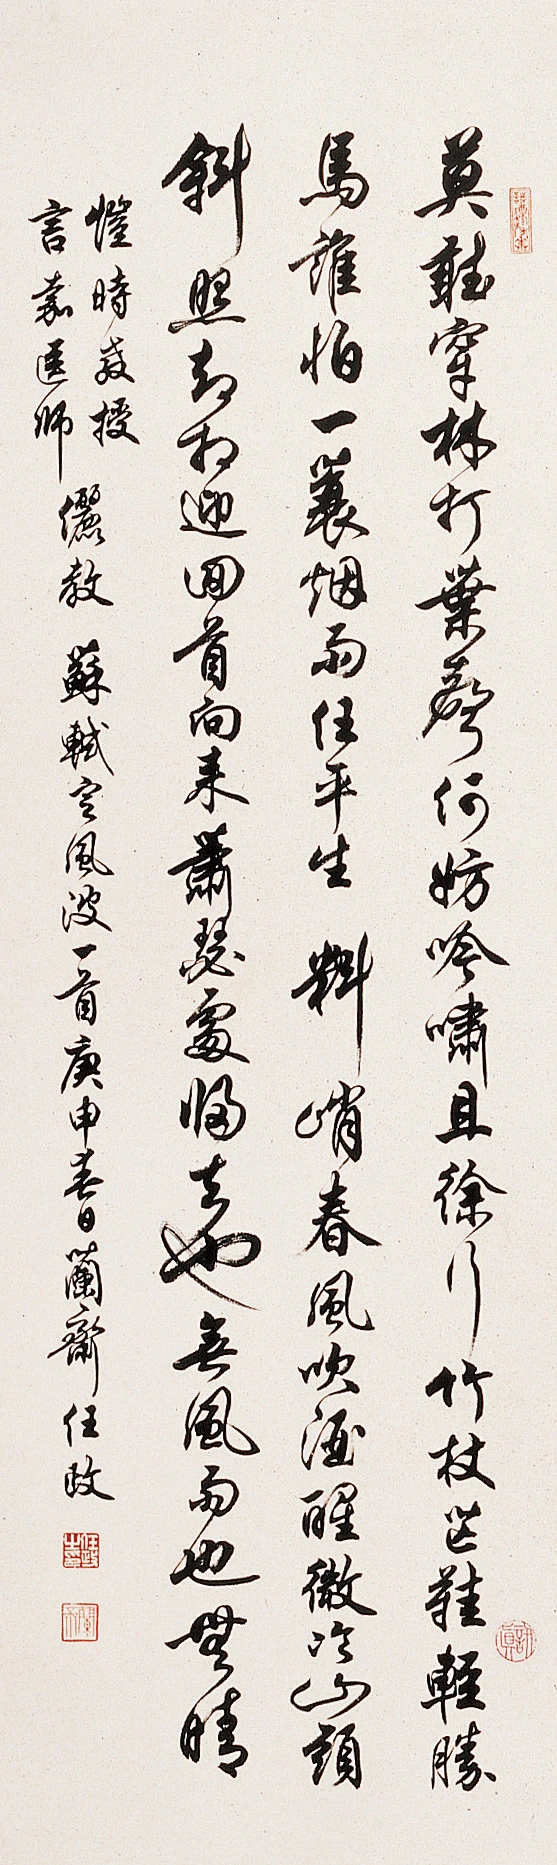 莫聽穿林打葉聲何妨吟嘯且徐行竹杖芒鞋輕勝
馬誰怕一蓑烟雨任平生 料峭春風吹酒醒微冷山頭
斜照却相迎回首向来蕭瑟處歸去也無風雨也無晴
愷時教授
言嘉医師
儷教 蘇軾定風波一首庚申春日蘭齋任政